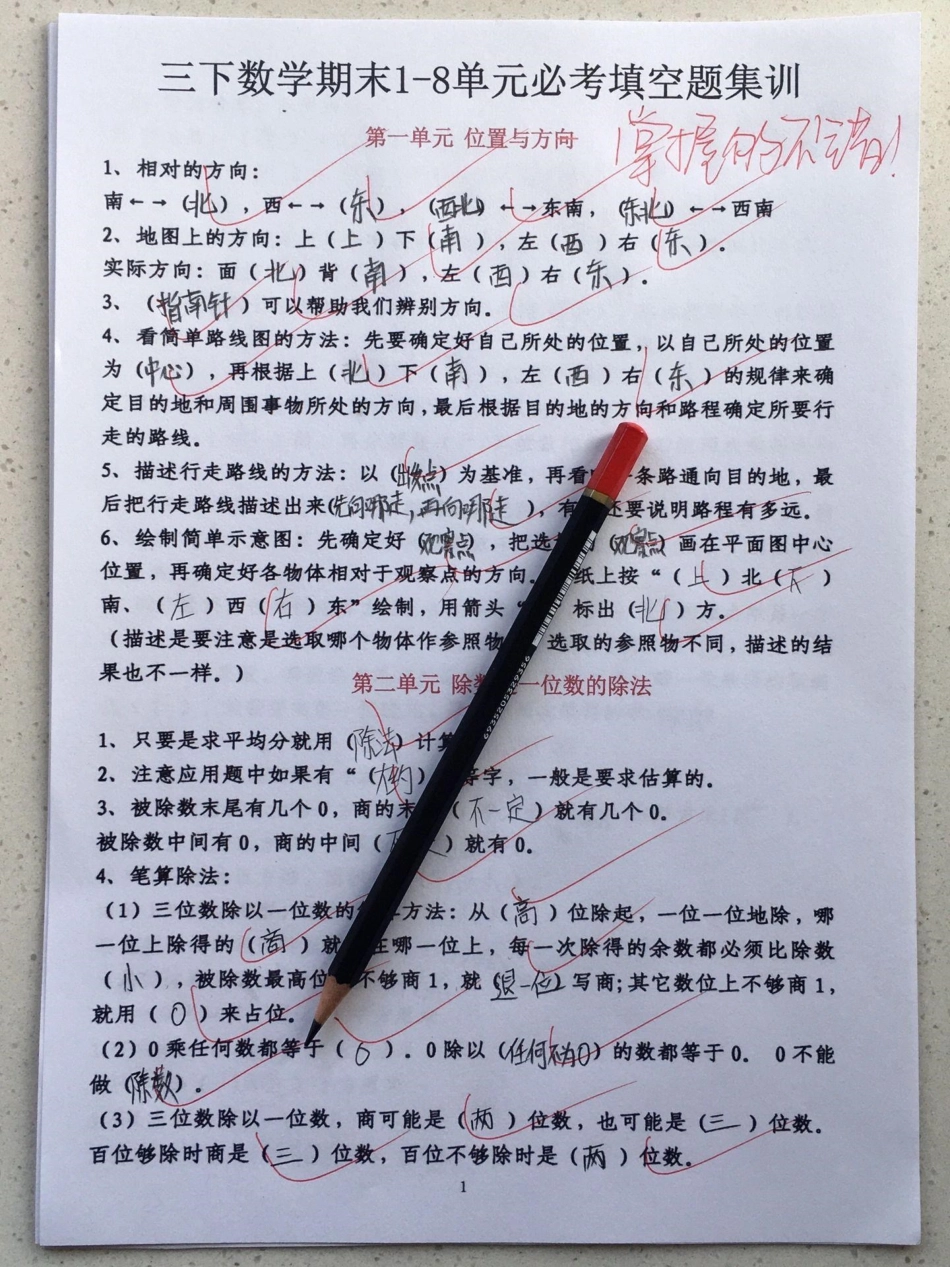 三下数学期末1-8单元必考填空题集训
第一单元 位置与方向
掌握的不错!
1、相对的方向:
南←→（北），西←→（东），（西北）←→东南，（东北）←→西南
2、地图上的方向：上（上）下（南），左（西）右（东）。
实际方向：面（北）背（南），左（西）右（东）。
3、（指南针）可以帮助我们辨别方向。
4、看简单路线图的方法：先要确定好自己所处的位置，以自己所处的位置
为（中心），再根据上（北）下（南），左（西）右（东）的规律来确
定目的地和周围事物所处的方向，最后根据目的地的方向和路程确定所要行
走的路线。
5、描述行走路线的方法：以（出发点）为基准，再看 条路通向目的地，最
后把行走路线描述出来（先向哪走，再向哪走），有 还要说明路程有多远。
6、绘制简单示意图：先确定好（观察点），把选 （观察点）画在平面图中心
位置，再确定好各物体相对于观察点的方向。 纸上按“（上）北（下）
南、（左）西（右）东”绘制，用箭头“ 标出（北）方。
（描述是要注意是选取哪个物体作参照物 选取的参照物不同，描述的结
果也不一样。）
第二单元 除数 一位数的除法
1、只要是求平均分就用（除法）计算
2、注意应用题中如果有“（大约） 等字，一般是要求估算的。
3、被除数末尾有几个0，商的末 （不一定）就有几个0。
被除数中间有0，商的中间（ ）就有0。
4、笔算除法：
（1）三位数除以一位数的 方法：从（高）位除起，一位一位地除，哪
一位上除得的（商）就 在哪一位上，每一次除得的余数都必须比除数
（小），被除数最高位 不够商1，就（退一位）写商；其它数位上不够商1，
就用（0）来占位。
（2）0乘任何数都等于（0）。0除以（任何不为0）的数都等于0。 0不能
做（除数）。
（3）三位数除以一位数，商可能是（两）位数，也可能是（三）位数。
百位够除时商是（三）位数，百位不够除时是（两）位数。
1
6935205329356